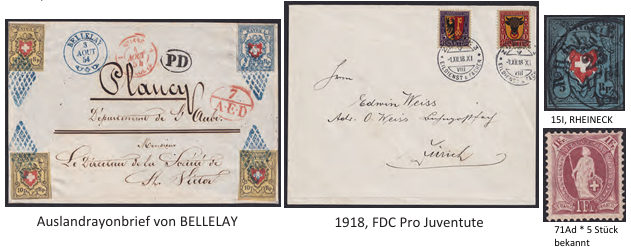 BELLELAY
3
AOUT
54
PD
7
A.E.D
Plancy
Département de St Aube.
Monsieur
Le Directeur de la Société de
St. Victor
Auslandrayonbrief von BELLELAY
Herrn
Edwin Weiss
Adr. O. Weiss
Zürich
1918, FDC Pro Juventute
15I, RHEINECK
1 FR.
71Ad * 5 Stück
bekannt